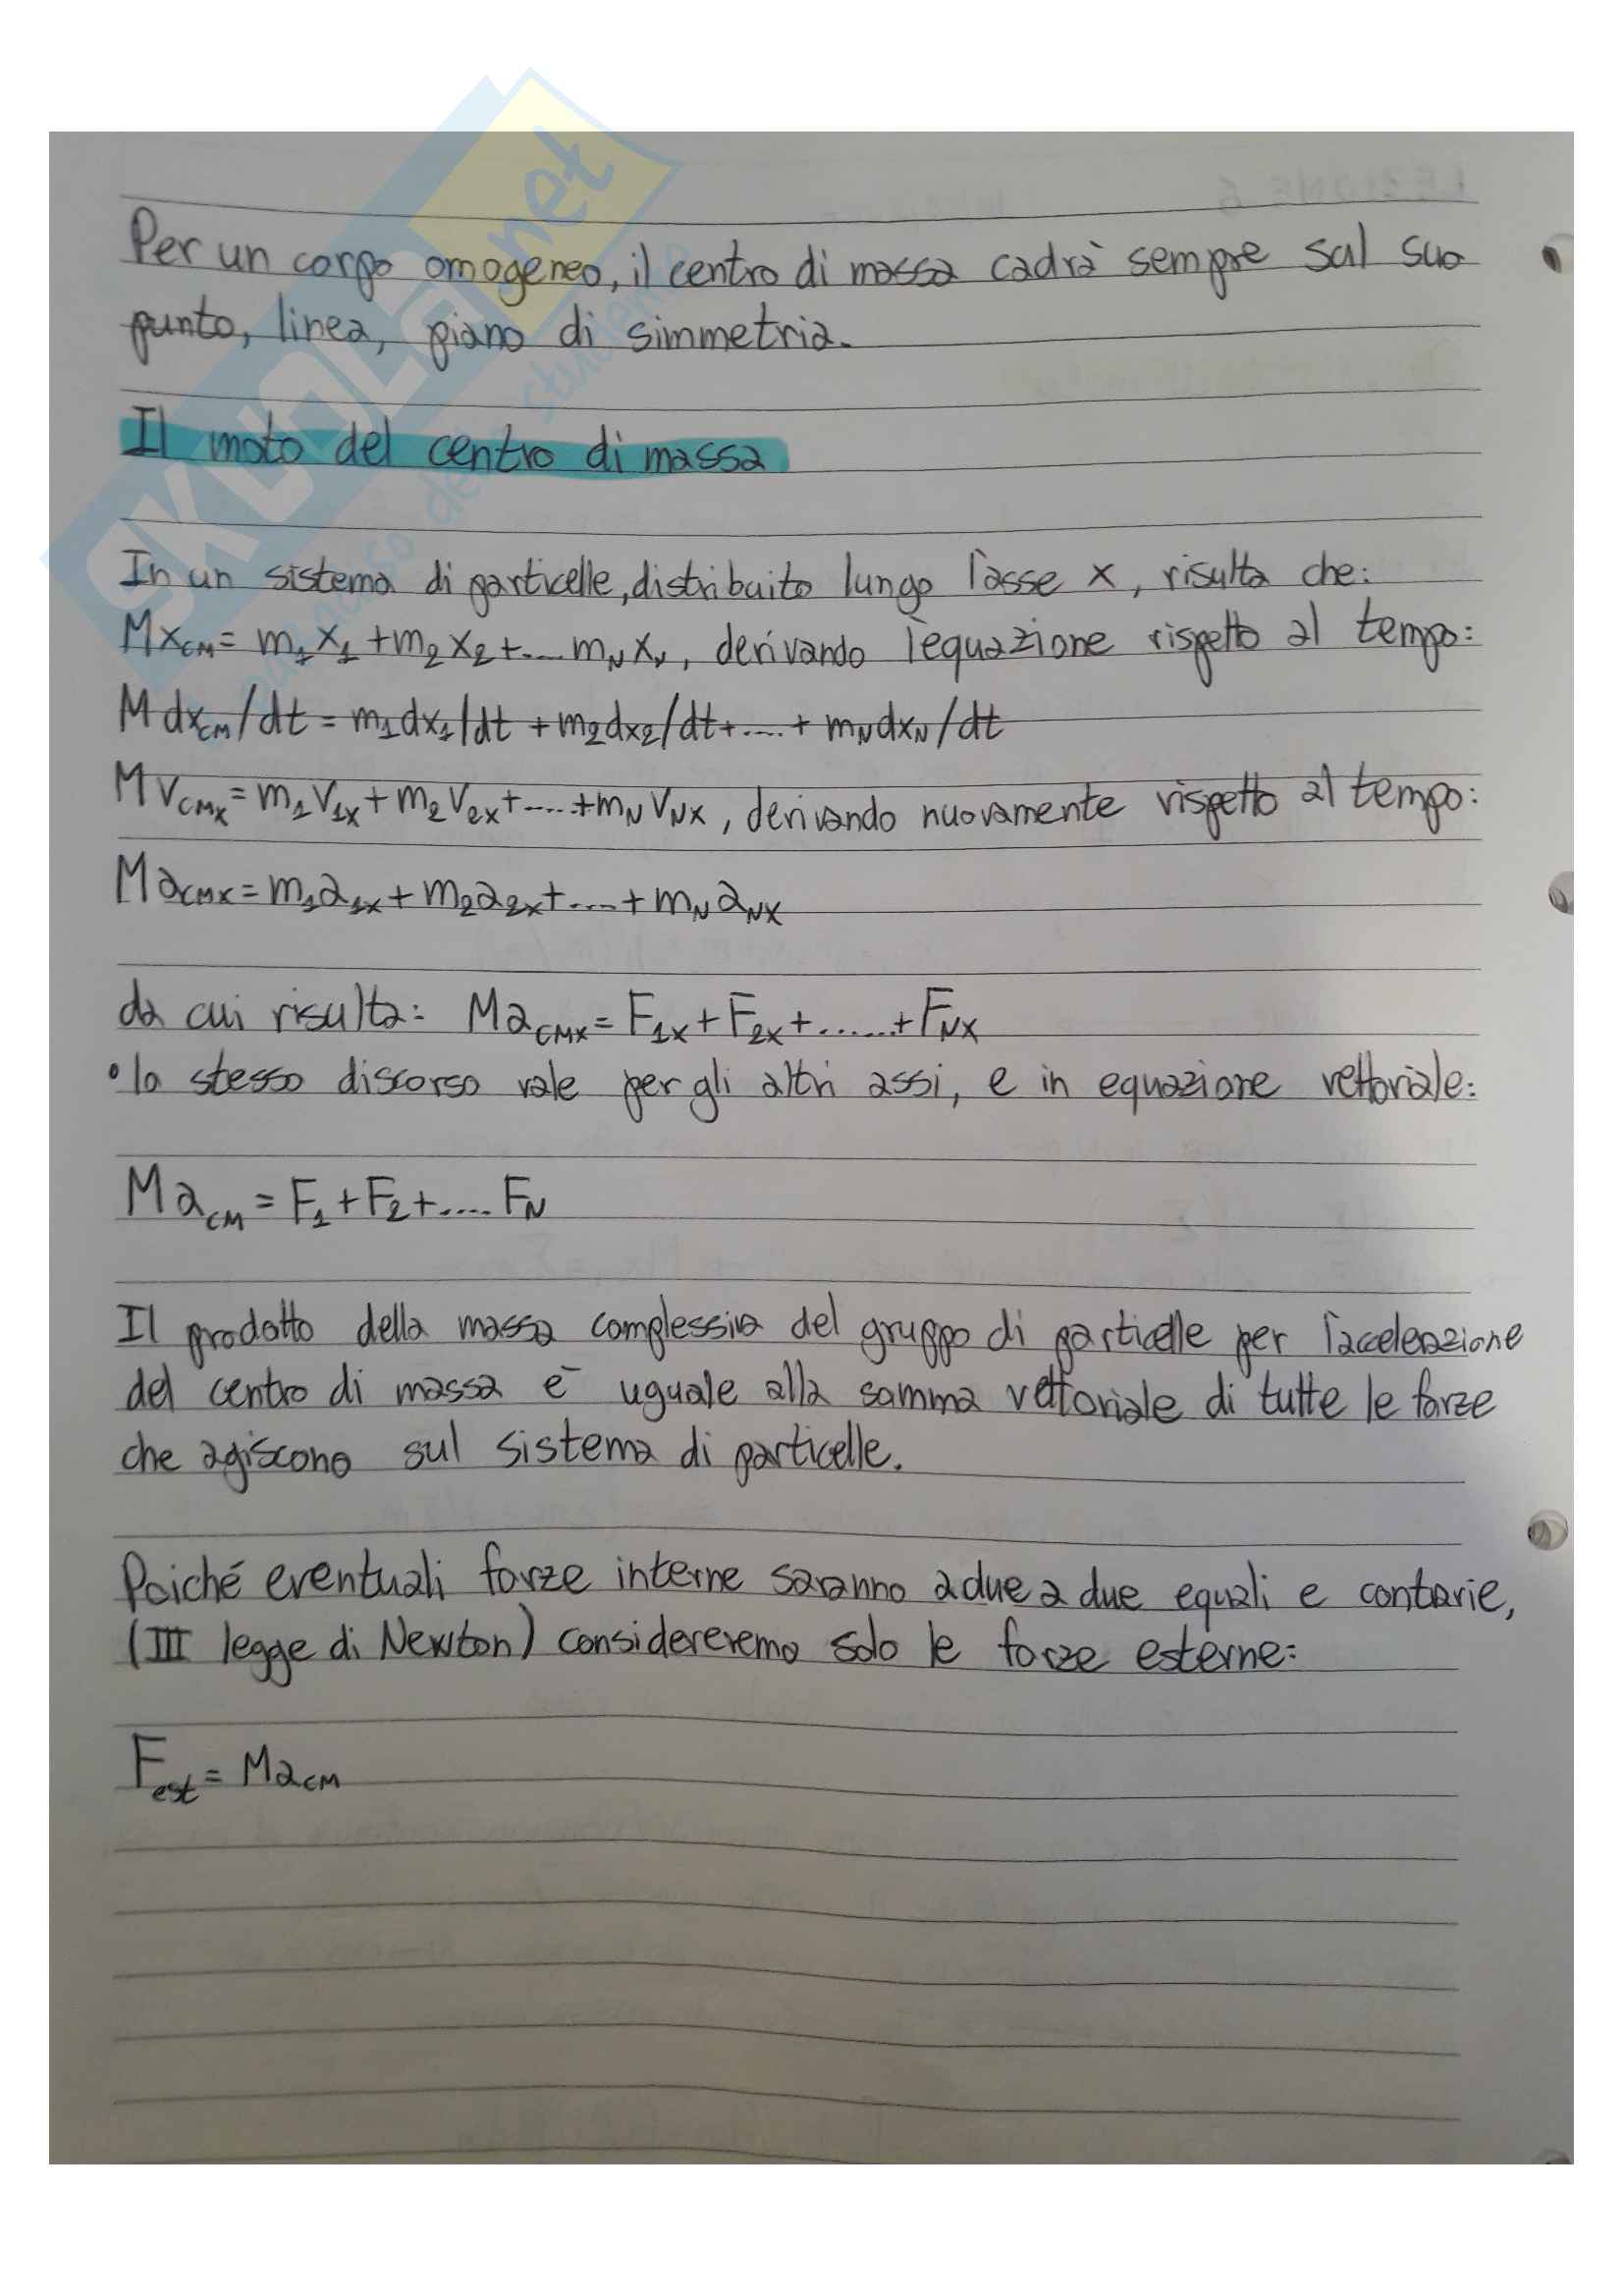 Per un corpo omogeneo, il centro di massa cadrà sempre sul suo
punto, linea, piano di simmetria.
Il moto del centro di massa
In un sistema di particelle, distribuito lungo l'asse x, risulta che:
Mx_CM = m_1 x_1 + m_2 x_2 + .... m_N x_N, derivando l'equazione rispetto al tempo:
M dx_CM/dt = m_1 dx_1/dt + m_2 dx_2/dt + .... + m_N dx_N/dt
M v_CMx = m_1 v_1x + m_2 v_2x + .... + m_N v_Nx, derivando nuovamente rispetto al tempo:
M a_CMx = m_1 a_1x + m_2 a_2x + .... + m_N a_Nx
da cui risulta: M a_CMx = F_1x + F_2x + ...... + F_Nx
• lo stesso discorso vale per gli altri assi, e in equazione vettoriale:
M a_CM = F_1 + F_2 + .... F_N
Il prodotto della massa complessiva del gruppo di particelle per l'accelerazione
del centro di massa è uguale alla somma vettoriale di tutte le forze
che agiscono sul sistema di particelle.
Poiché eventuali forze interne saranno a due a due equali e contarie,
(III legge di Newton) considereremo solo le forze esterne:
F_est = M a_CM
SKUOLA.net